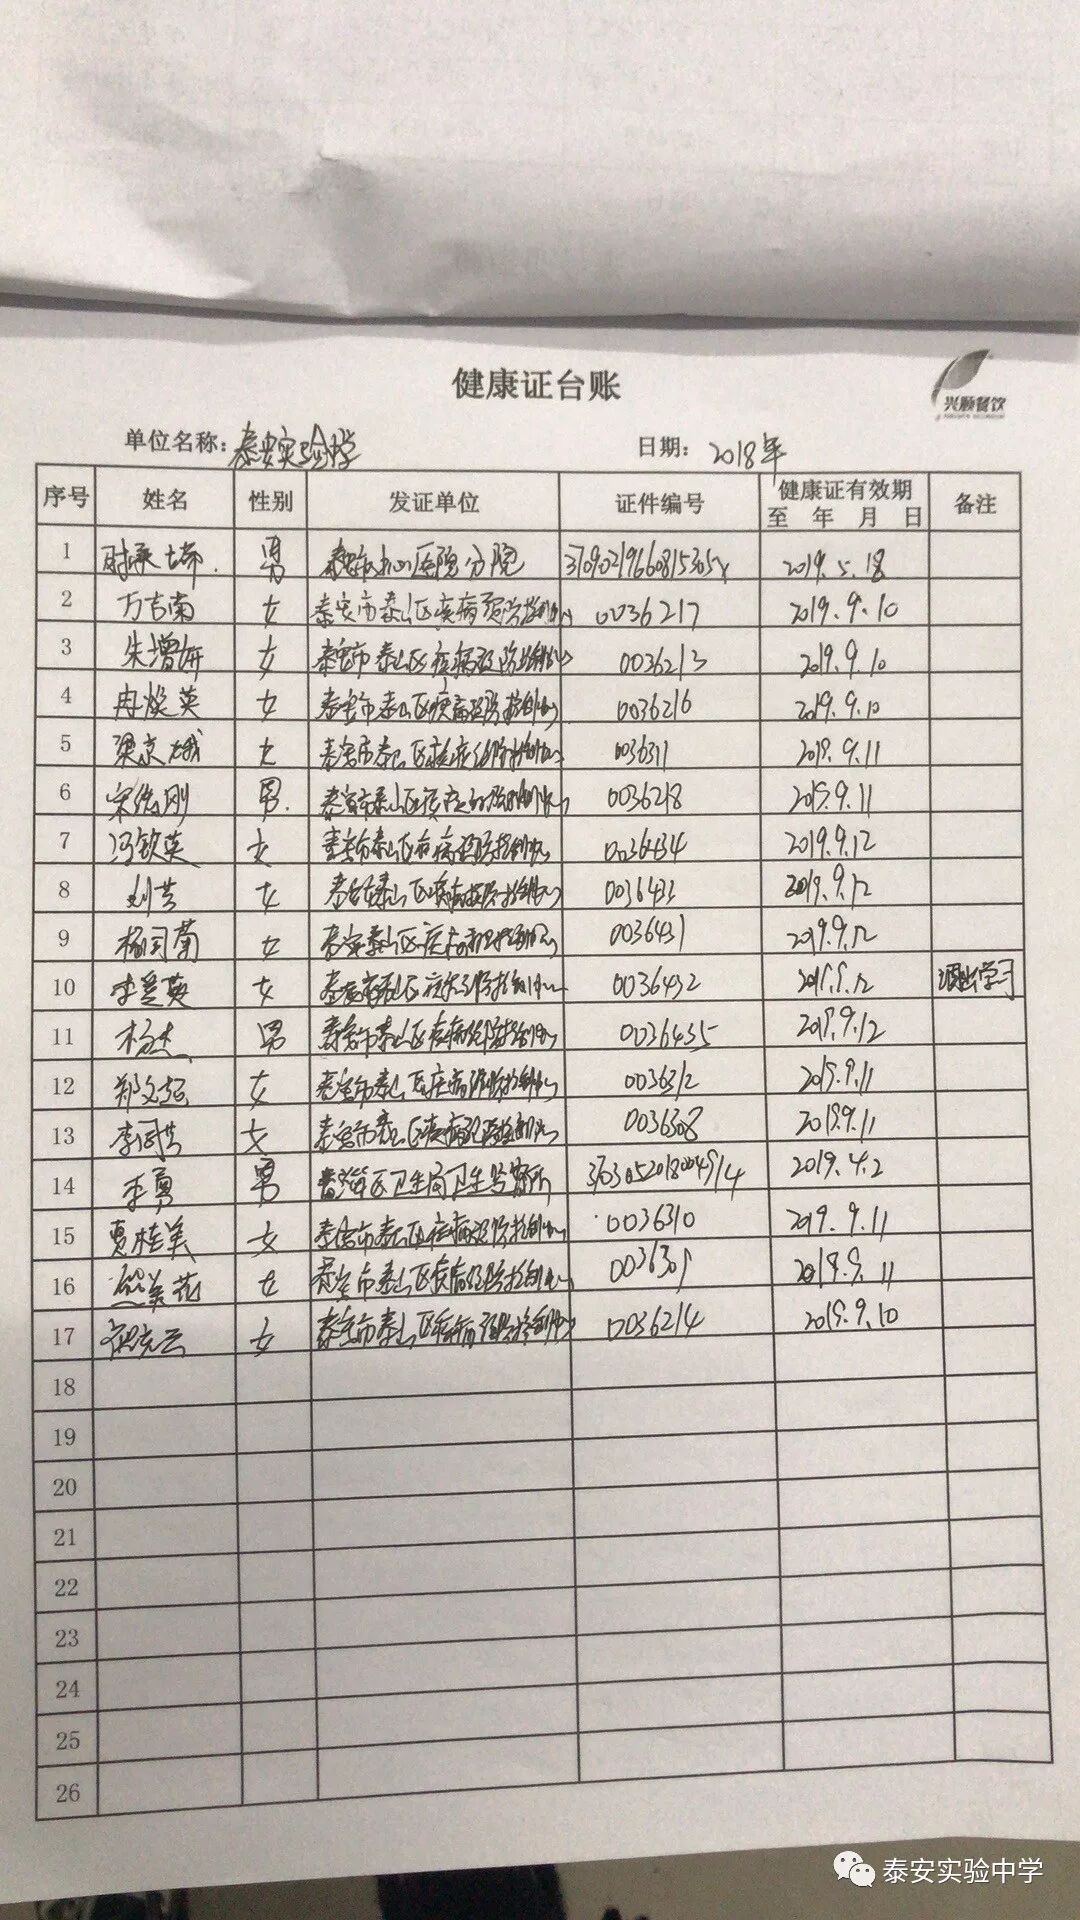 健康证台账
兴顺餐饮
单位名称：泰安实验中学 日期： 2018年
序号 姓名 性别 发证单位 证件编号 健康证有效期 至 年 月 日 备注
1 男 2019.5.18
2 万吉南 女 泰安市泰山区疾病预防控制中心 0036217 2019.9.10
3 朱增妍 女 泰安市泰山区疾病预防控制中心 0036213 2019.9.10
4 冉焕英 女 泰安市泰山区疾病预防控制中心 0036216 2019.9.10
5 梁京娥 女 泰安市泰山区疾病预防控制中心 0036311 2019.9.11
6 宋传刚 男 泰安市泰山区疾病预防控制中心 0036218 2019.9.11
7 冯钦英 女 泰安市泰山区疾病预防控制中心 0036434 2019.9.12
8 刘芸 女 泰安市泰山区疾病预防控制中心 2019.9.12
9 女 泰安泰山区疾病预防控制中心 0036431 2019.9.12
10 李爱英 女 泰安市泰山区疾病预防控制中心 0036432 2019.9.12
11 杨杰 男 泰安市泰山区疾病预防控制中心 0036435 2019.9.12
12 女 泰安市泰山区疾病预防控制中心 0036312 2019.9.11
13 女 泰安市泰山区疾病预防控制中心 0036308 2019.9.11
14 李勇 男 2019.4.2
15 贾桂美 女 泰安市泰山区疾病预防控制中心 0036310 2019.9.11
16 女 泰安市泰山区疾病预防控制中心 0036309 2019.9.11
17 女 泰安市泰山区疾病预防控制中心 0036214 2019.9.10
18
19
20
21
22
23
24
25
26
泰安实验中学